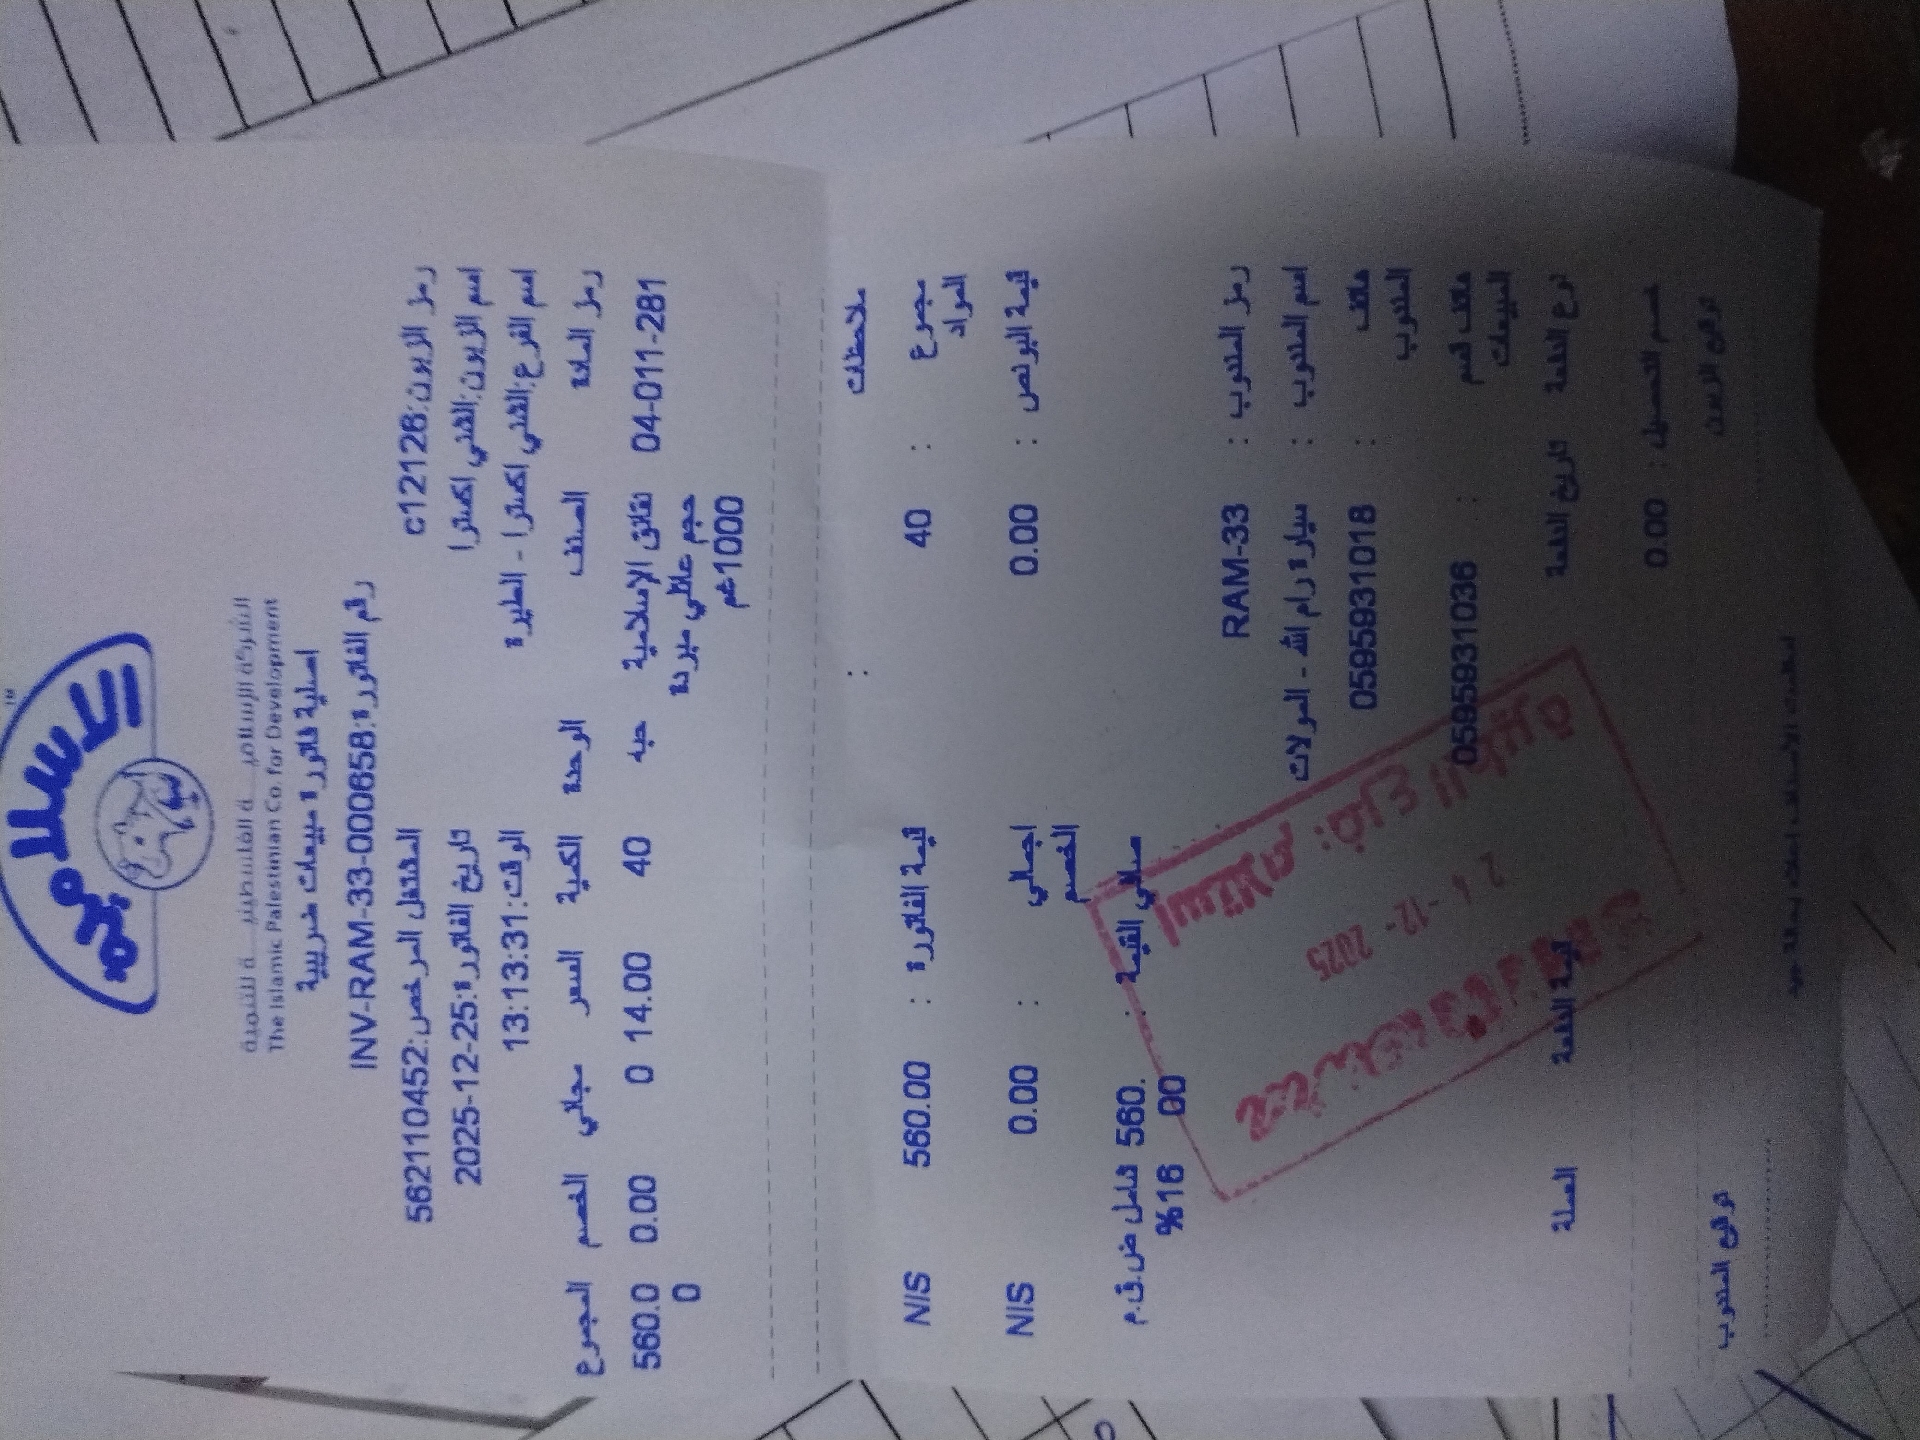 الإسلامية
TM
الشركة الإسلامية الفلسطينية للتنمية
The Islamic Palestinian Co. for Development
اصلية فاتورة مبيعات ضريبية
رقم الفاتورة:INV-RAM-33-000658
رمز الزبون:c12126 المشتغل المرخص:562110452
اسم الزبون:الشني اكسترا تاريخ الفاتورة:2025-12-25
اسم الفرع:الشني اكسترا - الطيرة الوقت:13:13:31
رمز المادة الصنف الوحدة الكمية السعر مجاني الخصم المجموع
04-011-281 نقانق الإسلامية حبه 40 14.00 0 0.00 560.0
حجم عائلي مبردة 0
1000غم
ملاحظات :
مجموع المواد : 40 قيمة الفاتورة : 560.00 NIS
قيمة البونص : 0.00 اجمالي الخصم : 0.00 NIS
صافي القيمة : 560.00 شامل ض.ق.م %16
رمز المندوب : RAM-33
اسم المندوب : سيارة رام الله - المولات
هاتف المندوب : 0595931018
هاتف قسم المبيعات : 0595931036
استلام
-12- 2025
نوع الدفعة تاريخ الدفعة قيمة الدفعة العملة
خصم التحصيل : 0.00
توقيع الزبون توقيع المندوب